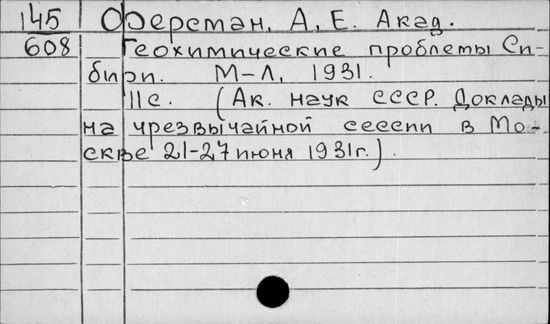 145 Ферсман, А. Е. Акад.
608 Геохимические проблемы Си-
бири. М-Л, 1931.
11с. (Ак. наук СССР. Доклады
на чрезвычайной сессии в Мо-
скве 21-27 июня 1931г.).